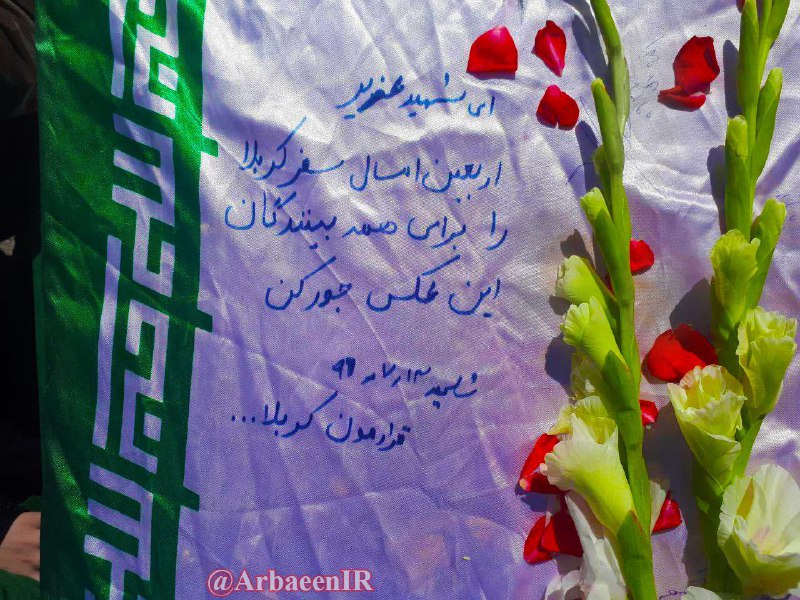 ای شهید عزیز
اربعین امسال سفر کربلا
را برای همه بینندگان
این عکس جور کن
۹۶
قرارمون کربلا...
@ArbaeenIR